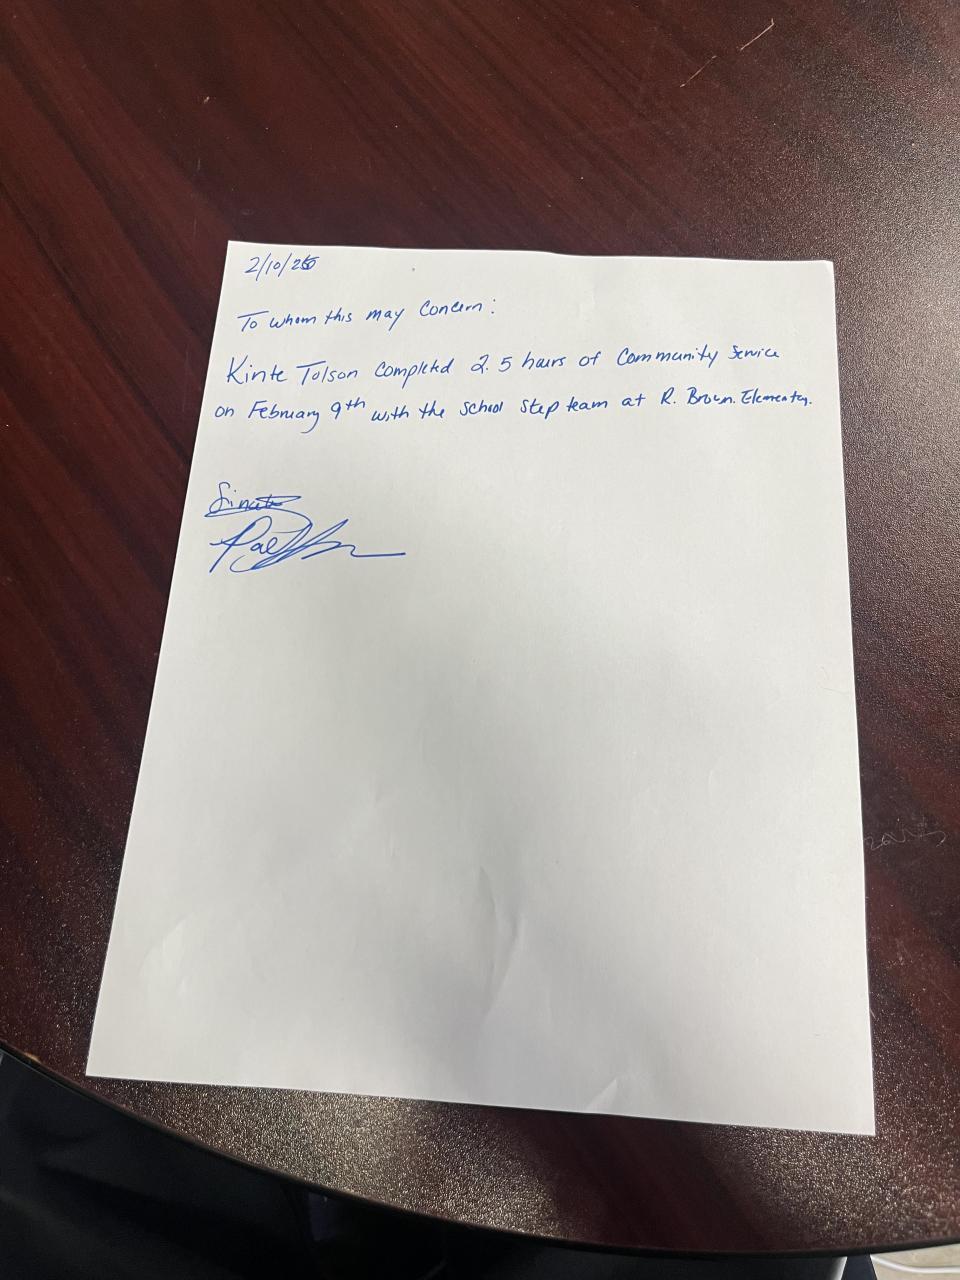 2/10/26
To whom this may Concern:
Kinte Tolson Completed 2.5 hours of Community Service
on February 9th with the school step team at R. Brown Elementary.